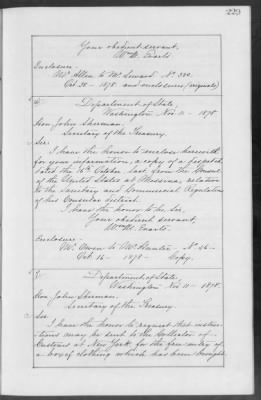 223
Your obedient servant,
Wm M. Evarts
Enclosure.
Mr. Allen to Mr. Seward No. 322
Oct. 25 - 1878 and enclosures (originals)
Department of State,
Washington Nov. 11 - 1878.
Hon. John Sherman,
Secretary of the Treasury.
Sir:
I have the honor to enclose herewith
for your information, a copy of a despatch
dated the 16th October last, from the Consul
of the United States at Messina, relative
to the Sanitary and Commercial Regulations
of his Consular district.
I have the honor to be, Sir,
Your obedient servant,
Wm M. Evarts.
Enclosure -
Mr. Owen to Mr. Hunter No. 46 -
Oct. 16 - 1878 - Copy.
Department of State,
Washington Nov. 11 - 1878.
Hon. John Sherman,
Secretary of the Treasury.
Sir:
I have the honor to request that instruc-
tions may be sent to the Collector of
Customs at New York for the free entry of
a box of clothing which has been brought